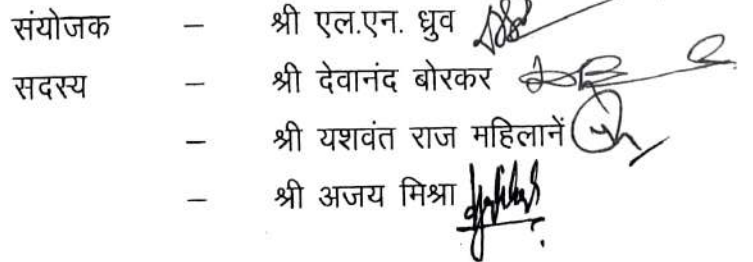 संयोजक – श्री एल.एन. ध्रुव
सदस्य – श्री देवानंद बोरकर
– श्री यशवंत राज महिलानें
– श्री अजय मिश्रा